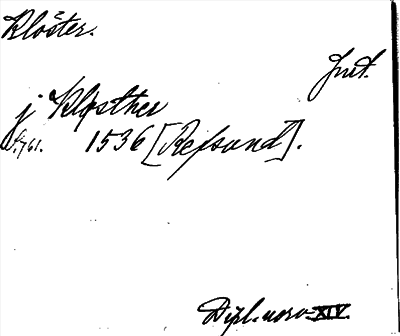 Klöster.
Jnst.
j Klosther
S. 761. 1536 [Refsund].
Dipl. norv. XIV.